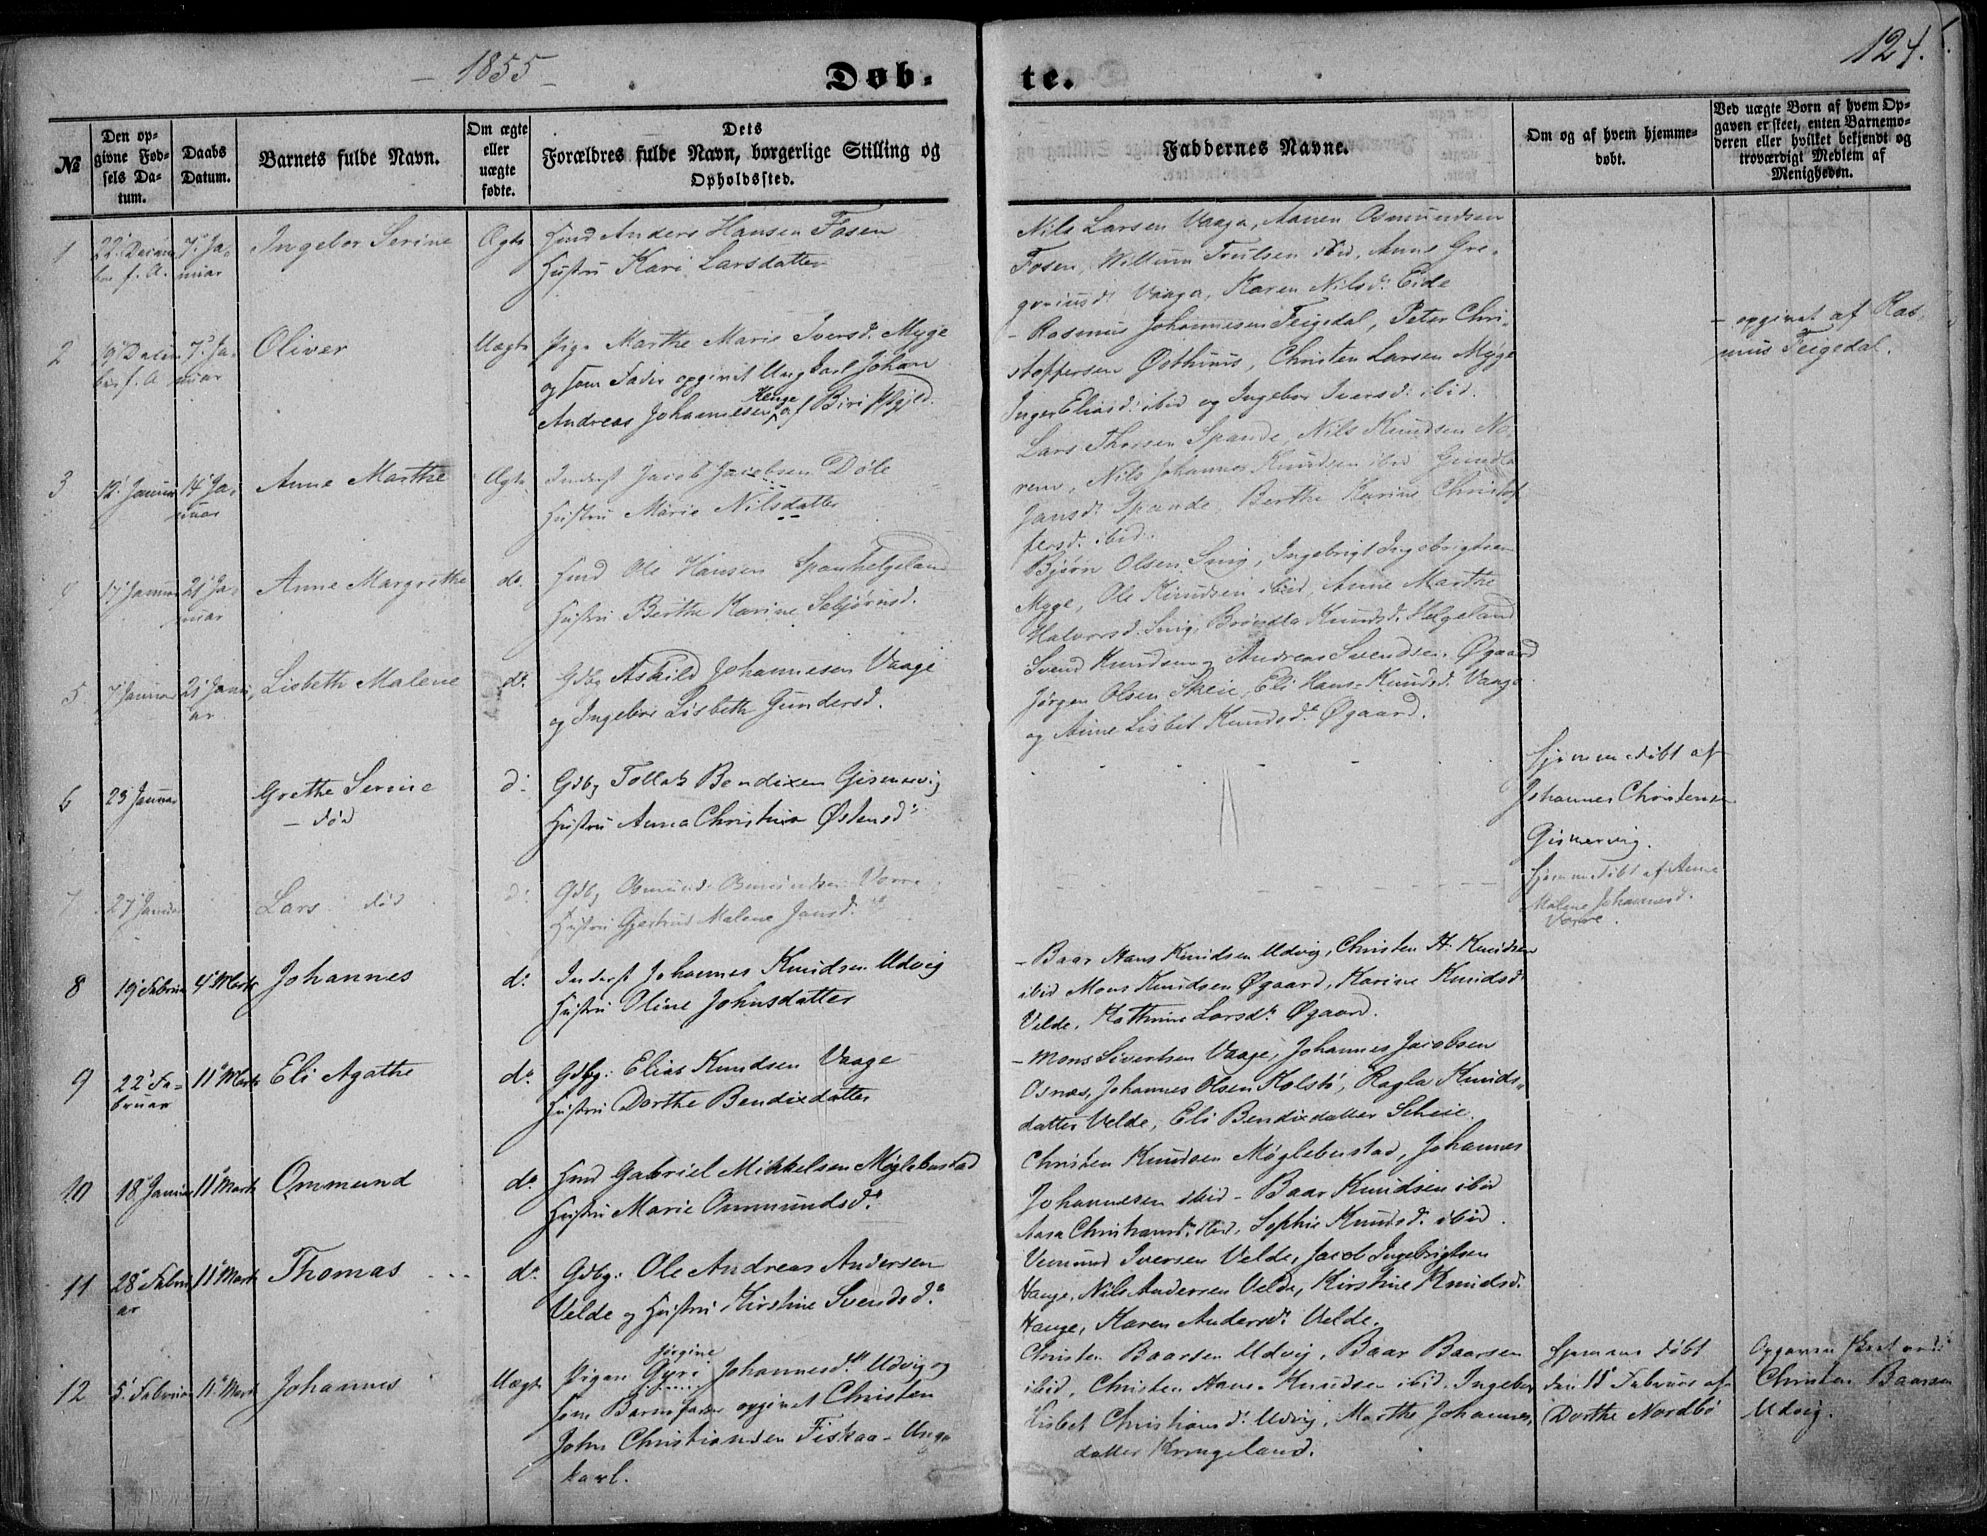 - 1855 -
Døb-
te.
124.
№
Den op-
givne Fød-
sels Da-
tum.
Daabs
Datum.
Barnets fulde Navn.
Om ægte
eller
uægte
fødte.
Dets
Forældres fulde Navn, borgerlige Stilling og
Opholdssted.
Faddernes Navne.
Om og af hvem hjemme-
døbt.
Ved uægte Børn af hvem Op-
gaven er skeet, enten Barnemo-
deren eller hvilket bekjendt og
troværdigt Medlem af
Menigheden.
1
22' Decem
ber f. A.
7' Ja-
nuar
Ingebor Serine
Ægte
Hmd Anders Hansen Fosen
Hustru Kari Larsdatter
Nils Larsen Vaaga, Aanen Osmundsen
Fosen, Willum Trulsen ibid, Anne Gre-
goriusd: Vaaga, Karen Nilsd: Eide
2
Decem
ber f. A
7' Ja-
nuar
Oliver
Uægte
Pige Marthe Marie Iversd. Myge
og som Fader opgivet Ungkarl Johan
Andreas Johannesen Kenge af Biri Pgjld.
- Rasmus Johannesen Teigedal, Peter Chri-
stoffersen Østhuus, Christen Larsen Myge
Inger Eliasd: ibid og Ingebor Iversd: ibid.
- opgivet af Ras-
mus Teigedal.
3
12' Januar
14' Ja-
nuar
Anne Marthe
Ægte
Inderst Jacob Jacobsen Døle
Hustru Marie Nilsdatter
Lars Thorsen Spande, Nils Knudsen No-
rem, Nils Johannes Knudsen ibid
Jansd: Spande, Berthe Karine Christof
fersd. ibid.
17' Januar
21' Ja-
nuar
Anne Margrethe
do.
Hmd Ole Hansen Spanhelgeland
Hustru Berthe Karine Sebjørnsd.
Bjørn Olsen Snig, Ingebrigt Ingebrigtsen
Myge, Ole Knudsen ibid, Anne Marthe
Halvorsd. Snig, Knudsd. Helgeland
5
7' Januar
21' Janu-
ar
Lisbeth Malene
do.
Gdbg Askild Johannesen Vaage
og Ingebor Lisbeth Gundersd.
Svend Knudsen, Andreas Svendsen Øgaard
Jørgen Olsen Skeie, Eli Hans-Knudsd. Vaage
og Anne Lisbet Knudsd: Øgaard.
6
23' Januar
Grethe Serine
- død
d:
Gdbg Tollak Bendixen Gismervig
Hustru Anna Christine Østensd:
Hjemmedøbt af
Johannes Christensen
Gismervig.
7
27' Januar
Lars død
d:
Gdbg Osmund Osmundsen Vorre
Hustru Gjertrud Malene Jansd:
Hjemmedøbt af Anne
Malene Johannesd.
Vorre.
8
19' Februar
4' Marts
Johannes
do.
Inderst Johannes Knudsen Udvig
Hustru Oline Johnsdatter
- Baar Hans Knudsen Udvig, Christen H. Knudsen
ibid Mons Knudsen Øgaard, Karine Knudsd:
Velde, Kathrine Larsd: Øgaard.
9
22' Fe-
bruar
11' Marts
Eli Agathe
do.
Gdbg: Elias Knudsen Vaage
Hustru Dorthe Bendixdatter
- Mons Sivertsen Vaage, Johannes Jacobsen
Osnæs, Johannes Olsen Kolstø, Ragla Knuds-
datter Velde, Eli Bendixdatter Scheie.
10
18' Januar
11' Marts
Ommund
do.
Hmd Gabriel Mikkelsen Møglebustad
Hustru Marie Ommundsd:
Christen Knudsen Møglebustad, Johannes
Johannesen ibid - Baar Knudsen ibid
Aasa Christiansd: ibid, Sophie Knudsd. ibid.
11
28' Febru
ar
11' Marts
Thomas
do.
Gdbg: Ole Andreas Andersen
Velde og Hustru Kirstine Svendsd:
Vermund Iversen Velde, Jacob Ingebrigtsen
Hauge, Nils Andersen Velde, Kirstine Knudsd.
Hauge, Karen Andersd: Velde.
12
5' Februar
11' Marts
Johannes
Uægte
Pigen Gyri Jørgine Johannesd: Udvig og
som Barnefader opgivet Christen
John Christiansen Fiskaa - Unge
karl.
Christen Baarsen Udvig, Baar Baarsen
ibid, Christen Hans-Knudsen ibid, Ingebor
Lisbet Christiansd: Udvig, Marthe Johannes-
datter Kringeland.
Hjemmedøbt
den 15 Februar af
Dorthe Nordbø
Opgaven skeet ved
Christen Baarsen
Udvig.